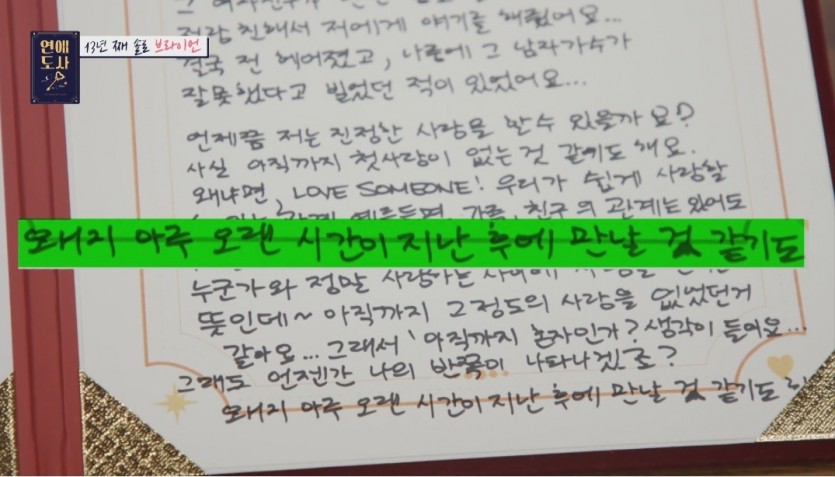 연애
도사
13년 째 솔로 브라이언
저랑 친해서 저에게 얘기를 해줬어요...
결국 전 헤어졌고, 나중에 그 남자가수가
잘못했다고 빌었던 적이 있었어요...
언제쯤 저는 진정한 사랑을 할 수 있을까요?
사실 아직까지 첫사랑이 없는 것 같기도 해요.
왜냐면, LOVE SOMEONE! 우리가 쉽게 사랑할
가족, 친구의 관계는 있어도
왠지 아주 오랜 시간이 지난 후에 만날 것 같기도
누군가와 정말 사랑하는 사이에
뜻인데~ 아직까지 그정도의 사랑을 없었던거
같아요... 그래서 '아직까지 혼자인가? 생각이 들어요...
그래도 언젠간 나의 반쪽이 나타나겠죠?
왠지 아주 오랜 시간이 지난 후에 만날 것 같기도